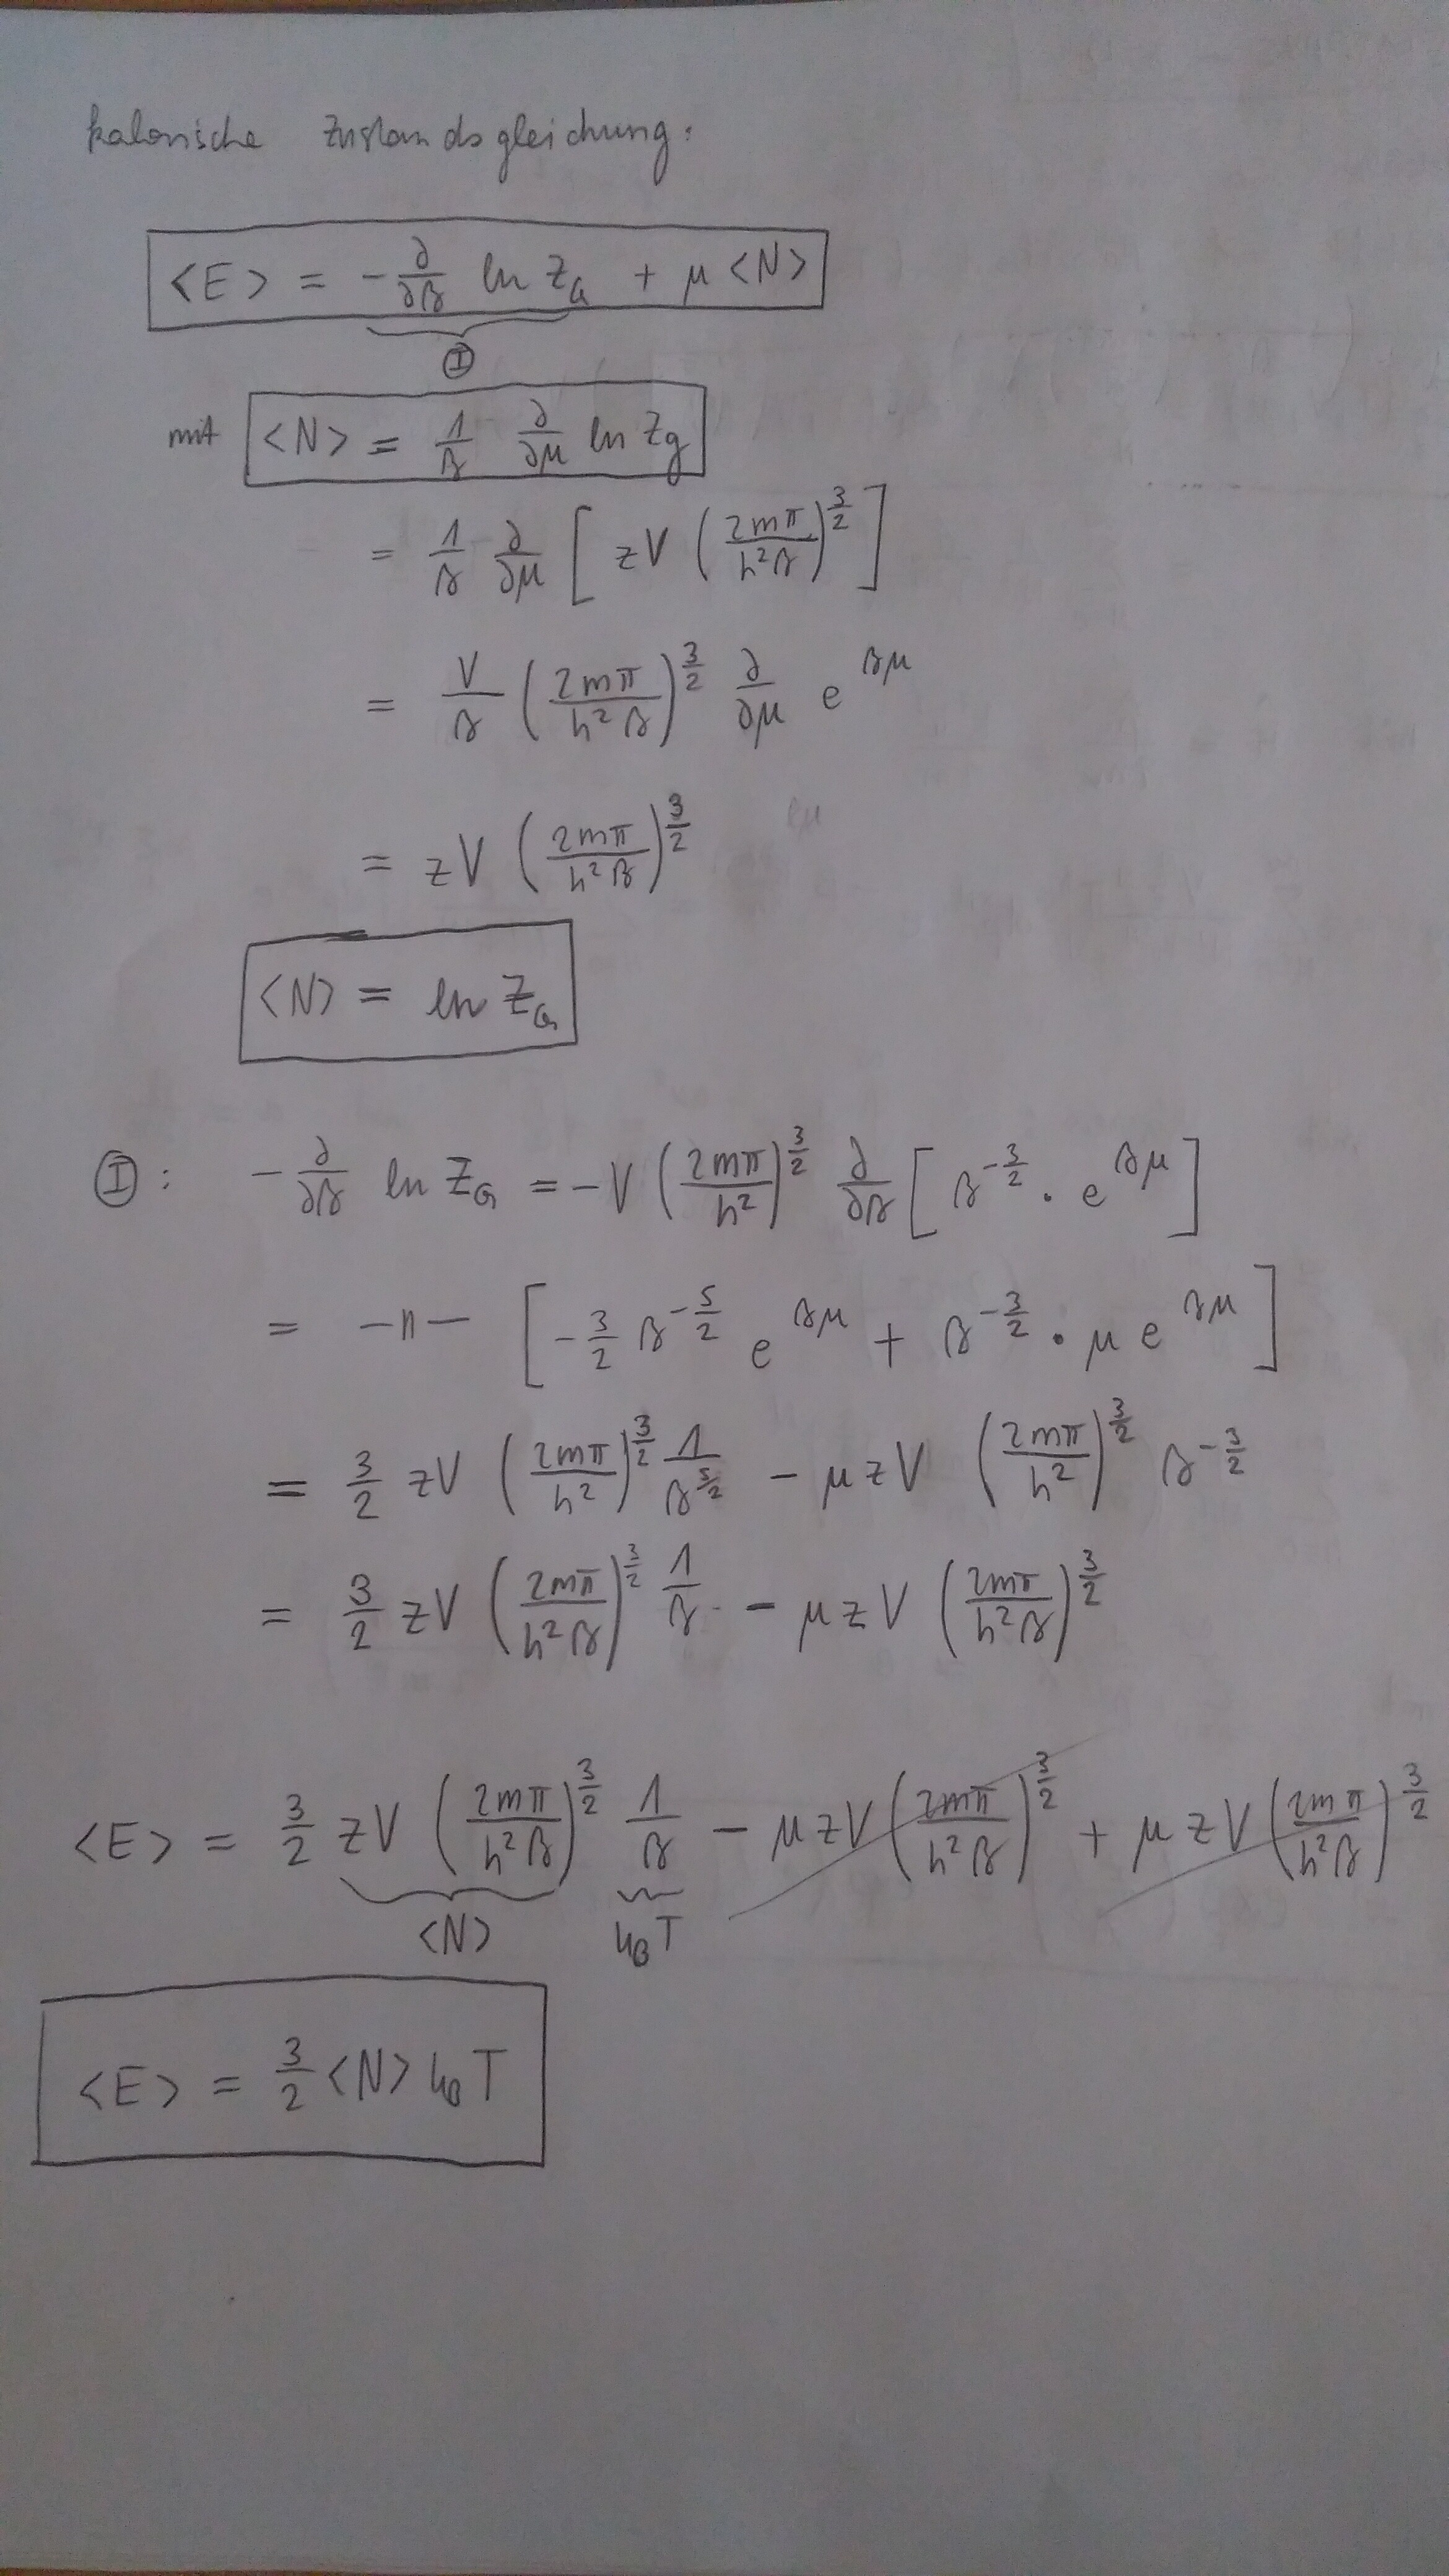 kalorische Zustandsgleichung:
<E> = - ∂/∂β ln Z_G + μ <N>
Ⓘ
mit <N> = 1/β ∂/∂μ ln Z_g
= 1/β ∂/∂μ [ zV (2mπ/h²β)^(3/2) ]
= V/β (2mπ/h²β)^(3/2) ∂/∂μ e^(βμ)
= zV (2mπ/h²β)^(3/2)
<N> = ln Z_G
Ⓘ: - ∂/∂β ln Z_G = - V (2mπ/h²)^(3/2) ∂/∂β [ β^(-3/2) · e^(βμ) ]
= —"— [ - 3/2 β^(-5/2) e^(βμ) + β^(-3/2) · μ e^(βμ) ]
= 3/2 zV (2mπ/h²)^(3/2) 1/β^(5/2) - μ z V (2mπ/h²)^(3/2) β^(-3/2)
= 3/2 zV (2mπ/h²β)^(3/2) 1/β - μ z V (2mπ/h²β)^(3/2)
<E> = 3/2 zV (2mπ/h²β)^(3/2) 1/β - μ z V (2mπ/h²β)^(3/2) + μ z V (2mπ/h²β)^(3/2)
<N> k_B T
<E> = 3/2 <N> k_B T